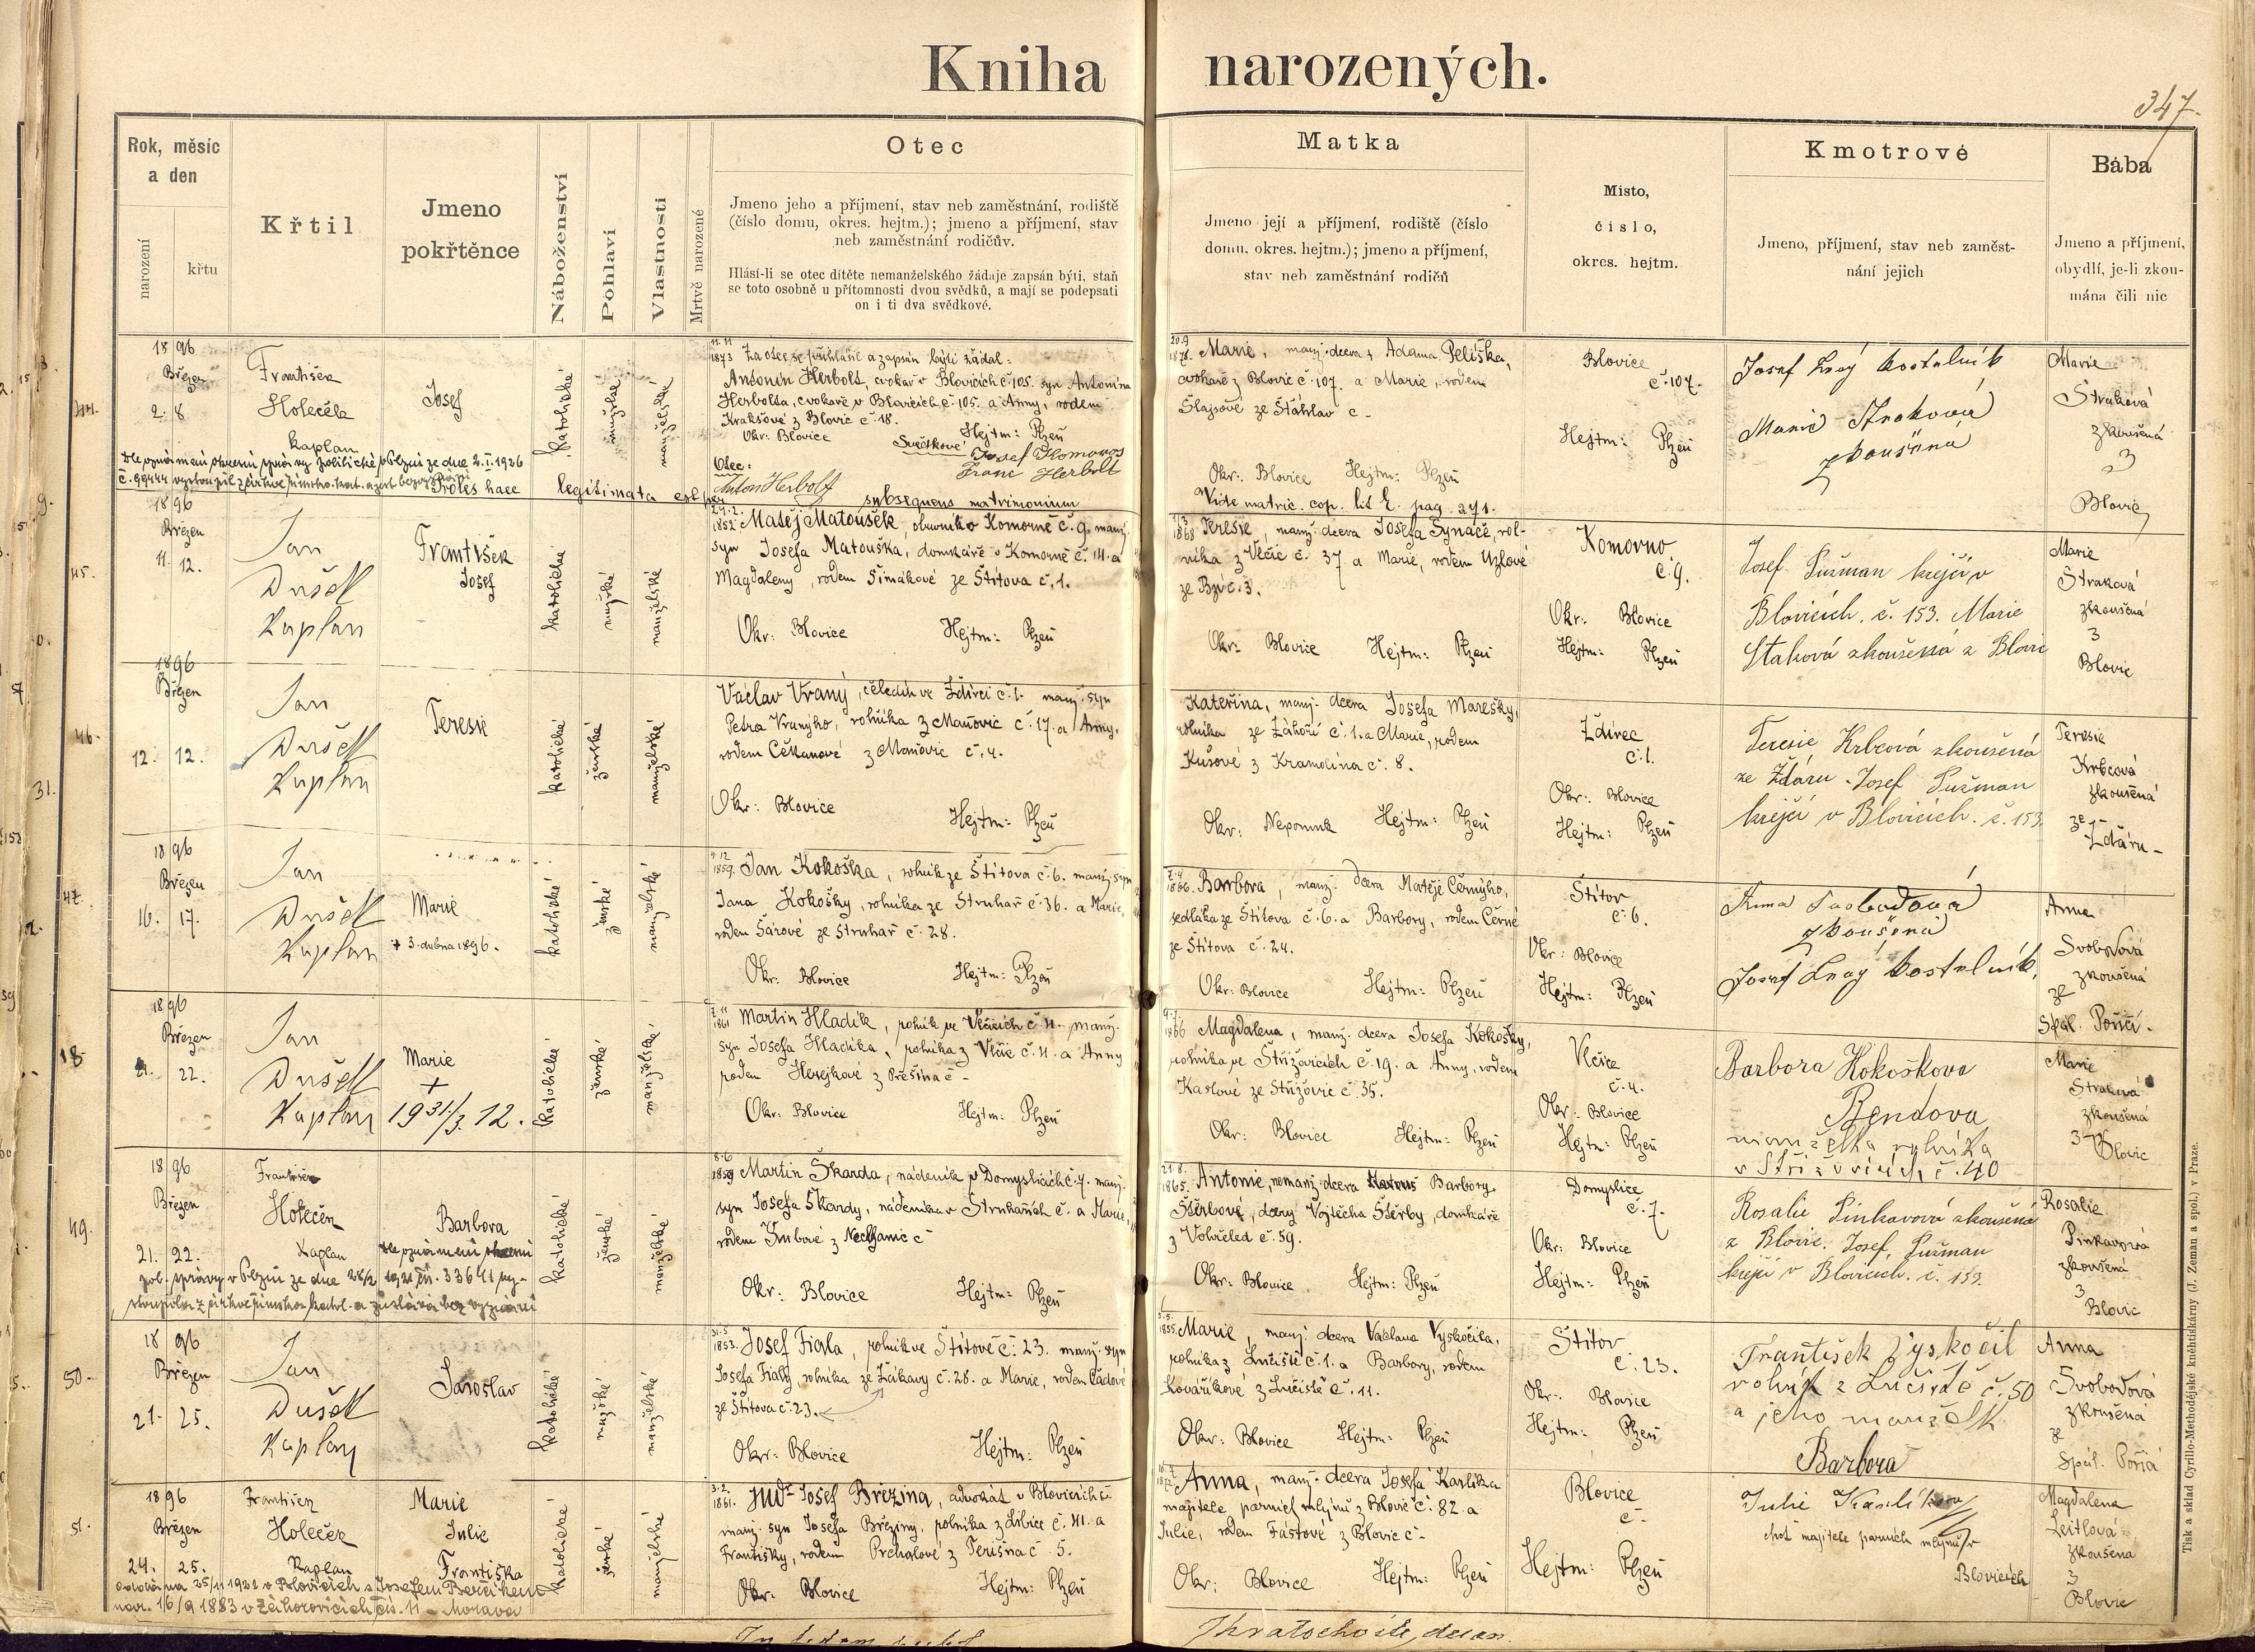 Kniha narozených.
347.
Rok, měsíc
a den
narození
křtu
Křtil
Jmeno
pokřtěnce
Náboženství
Pohlaví
Vlastnosti
Mrtvě narozené
Otec
Jmeno jeho a příjmení, stav neb zaměstnání, rodiště
(číslo domu, okres. hejtm.); jmeno a příjmení, stav
neb zaměstnání rodičův.
Hlásí-li se otec dítěte nemanželského žádaje zapsán býti, staň
se toto osobně u přítomnosti dvou svědků, a mají se podepsati
on i ti dva svědkové.
Matka
Jmeno její a příjmení, rodiště (číslo
domu, okres. hejtm.); jmeno a příjmení,
stav neb zaměstnání rodičů
Místo,
číslo,
okres. hejtm.
Kmotrové
Jmeno, příjmení, stav neb zaměst-
nání jejich
Bába
Jmeno a příjmení,
obydlí, je-li zkou-
mána čili nic
1896
Březen
2. 8
František
Holeček
kaplan
Josef
katolické
mužské
manželské
11. 11
1873 Za otce se přihlásil a zapsán býti žádal:
Antonín Herbolt, cvokař v Blovicích č. 105. syn Antonína
Herbolta, cvokaře v Blovicích č. 105. a Anny, rodem
Kraksové z Blovic č. 18.
Okr: Blovice Hejtm: Plzeň
Svědkové
Otec:
Anton Herbolt
Franc Herbolt
Proles haec legitimata est per subsequens matrimonium
20. 9
1876. Marie, manž. dcera Adama Peliška,
cvokaře z Blovic č. 107. a Marie, rodem
Šlajsové ze Šťáhlav č -
Okr: Blovice Hejtm: Plzeň
Vide matric. cop. lit E. pag. 271.
Blovice
č. 107.
Hejtm: Plzeň
Josef kostelník
Marie Straková
zkoušená
Marie
Straková
zkoušená
z
Blovic
45.
1896
Březen
11. 12.
Jan
Dušek
Kaplan
František
Josef
katolické
mužské
manželské
1852 Matěj Matoušek, obuvník v Komorně č. 9. manž.
syn Josefa Matouška, domkáře v Komorně č. 14. a
Magdaleny, rodem Šimákové ze Štítova č. 1.
Okr: Blovice Hejtm: Plzeň
1868 Teresie, manž. dcera Josefa Synáče, rol-
níka z Vlčic č. 37 a Marie, rodem Uzlové
ze Bzí č. 3.
Okr: Blovice Hejtm: Plzeň
Komorno
č. 9.
Okr: Blovice
Hejtm: Plzeň
Josef Lužman krejčí v
Blovicích. č. 153. Marie
Staková zkoušená z Blovic
Marie
Straková
zkoušená
z
Blovic
46.
1896
Březen
12. 12.
Jan
Dušek
Kaplan
Teresie
katolické
ženské
manželské
Václav Vraný, čeledín ve Ždírci č. 1. manž. syn
Petra Vraného, rolníka z Maňovic č. 17. a Anny,
rodem Čekanové z Maňovic č. 4.
Okr: Blovice Hejtm: Plzeň
Kateřina, manž. dcera Josefa Marešky,
rolníka ze Záhoří č. 1. a Marie, rodem
Kušové z Kramolína č. 8.
Okr: Nepomuk Hejtm: Plzeň
Ždírec
č. 1.
Okr: Blovice
Hejtm: Plzeň
Teresie Krbcová zkoušená
ze Ždáru. Josef Lužman
krejčí v Blovicích. č. 153.
Teresie
Krbcová
zkoušená
ze
Ždáru -
47.
1896
Březen
16. 17.
Jan
Dušek
Kaplan
Marie
+ 3. dubna 1896.
katolické
ženské
manželské
4. 12
1859. Jan Kokoška, rolník ze Štítova č. 6. manž. syn
Jana Kokošky, rolníka ze Struhař č. 36. a Marie,
rodem Šárové ze Struhař č. 28.
Okr: Blovice Hejtm: Plzeň
1866. Barbora, manž. dcera Matěje Černýho,
sedláka ze Štítova č. 6. a Barbory, rodem Černé
ze Štítova č. 24.
Okr: Blovice Hejtm: Plzeň
Štítov
č. 6.
Okr: Blovice
Hejtm: Plzeň
Anna Svobodová
zkoušená
Josef kostelník.
Anna
Svobodová
zkoušená
ze
Spál. Poříčí.
48
1896
Březen
21. 22.
Jan
Dušek
Kaplan
Marie
+
1931/3. 12.
katolické
ženské
manželské
7. 11
1861 Martin Hladík, rolník ve Vlčicích č. 4. manž.
syn Josefa Hladíka, rolníka z Vlčic č. 4. a Anny
rodem Herejkové z Přešína č -
Okr: Blovice Hejtm: Plzeň
1866 Magdalena, manž. dcera Josefa Kokošky,
rolníka ve Střížovicích č. 19. a Anny, rodem
Kaslové ze Střížovic č. 35.
Okr: Blovice Hejtm: Plzeň
Vlčice
č. 4.
Okr: Blovice
Hejtm: Plzeň
Barbora Kokošková
Bendova
manželka rolníka
v Střížovicích č. 40
Marie
Straková
zkoušená
z Blovic
49.
1896
Březen
21. 22.
František
Holeček
Kaplan
Barbora
katolické
ženské
manželské
8. 6
1859 Martin Škarda, nádeník v Domyslicích č. 7. manž.
syn Josefa Škardy, nádeníka v Struhařích č. a Marie,
rodem Vrbové z Nechanic č -
Okr: Blovice Hejtm: Plzeň
21. 8.
1865. Antonie, nemanž. dcera Barbory
Štěrbové, dcery Vojtěcha Štěrby, domkáře
z Vohřeled č. 59.
Okr: Blovice Hejtm: Plzeň
Domyslice
č. 7.
Okr: Blovice
Hejtm: Plzeň
Rosalie Pinkavová zkoušená
z Blovic. Josef Lužman
krejčí v Blovicích. č. 153.
Rosalie
Pinkavová
zkoušená
z
Blovic
50.
1896
Březen
21. 25.
Jan
Dušek
Kaplan
Jaroslav
katolické
mužské
manželské
31. 5
1853. Josef Fiala, rolník ve Štítově č. 23. manž. syn
Josefa Fialy, rolníka ze Žákavy č. 28. a Marie, rodem Čádové
ze Štítova č. 23.
Okr: Blovice Hejtm: Plzeň
1855. Marie, manž. dcera Václava Vyskočila,
rolníka z Lučiště č. 1. a Barbory, rodem
Kovaříkové z Lučiště č. 11.
Okr: Blovice Hejtm: Plzeň
Štítov
č. 23.
Okr: Blovice
Hejtm: Plzeň
František Vyskočil
rolník z Lučiště č. 50
a jeho manželk
Barbora
Anna
Svobodová
zkoušená
ze
Spál. Poříčí
51.
1896
Březen
24. 25.
František
Holeček
Kaplan
Marie
Julie
Františka
oddána 25/11 1922 v Blovicích s Josefem
nar. 16/9 1883 v Záhorovicích čís. 11 - Morava
katolické
ženské
manželské
3. 2.
1861. JUDr Josef Březina, advokát v Blovicích č.
manž. syn Josefa Březiny, rolníka z č. 41. a
Františky, rodem z Terišna č. 5.
Okr: Blovice Hejtm: Plzeň
Anna, manž. dcera Josefa Karlíka
majitele parních mlýnů z Blovic č. 82. a
Julie, rodem Fástové z Blovic č -
Okr: Blovice Hejtm: Plzeň
Blovice
č -
Hejtm: Plzeň
Julie Karlíkova
choť majitele parních mlýnů v
Blovicích
Magdalena
Leitlová
zkoušena
z
Blovic
Tisk a sklad Cyrillo-Methodějské knihtiskárny (J. Zeman a spol.) v Praze.